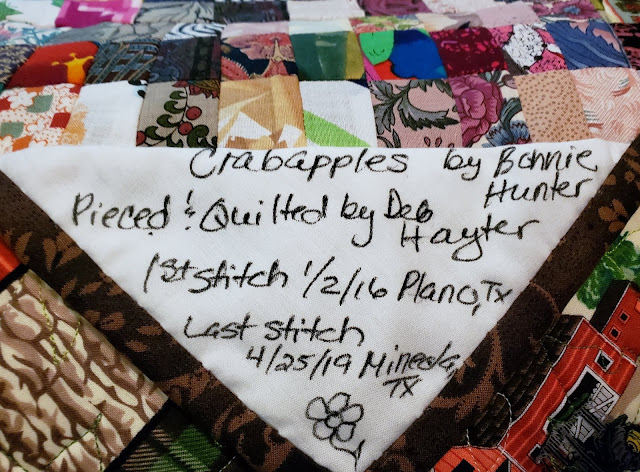 Crabapples by Bonnie
Hunter
Pieced & Quilted by Deb
Hayter
1st Stitch 1/2/16 Plano, Tx
Last Stitch
4/25/19 Mineola,
TX